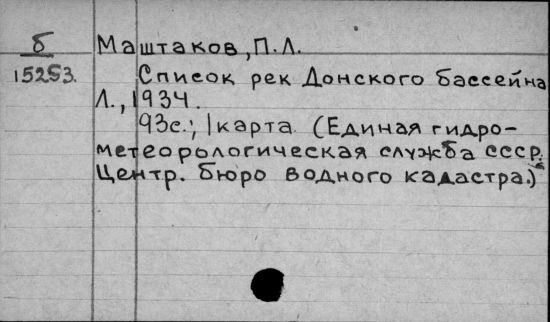 б
15253.
Маштаков, П.Л.
Список рек Донского бассейна
Л., 1934.
93с.; 1карта (Единая гидро-
метеорологическая служба СССР.
Центр. бюро водного кадастра.)